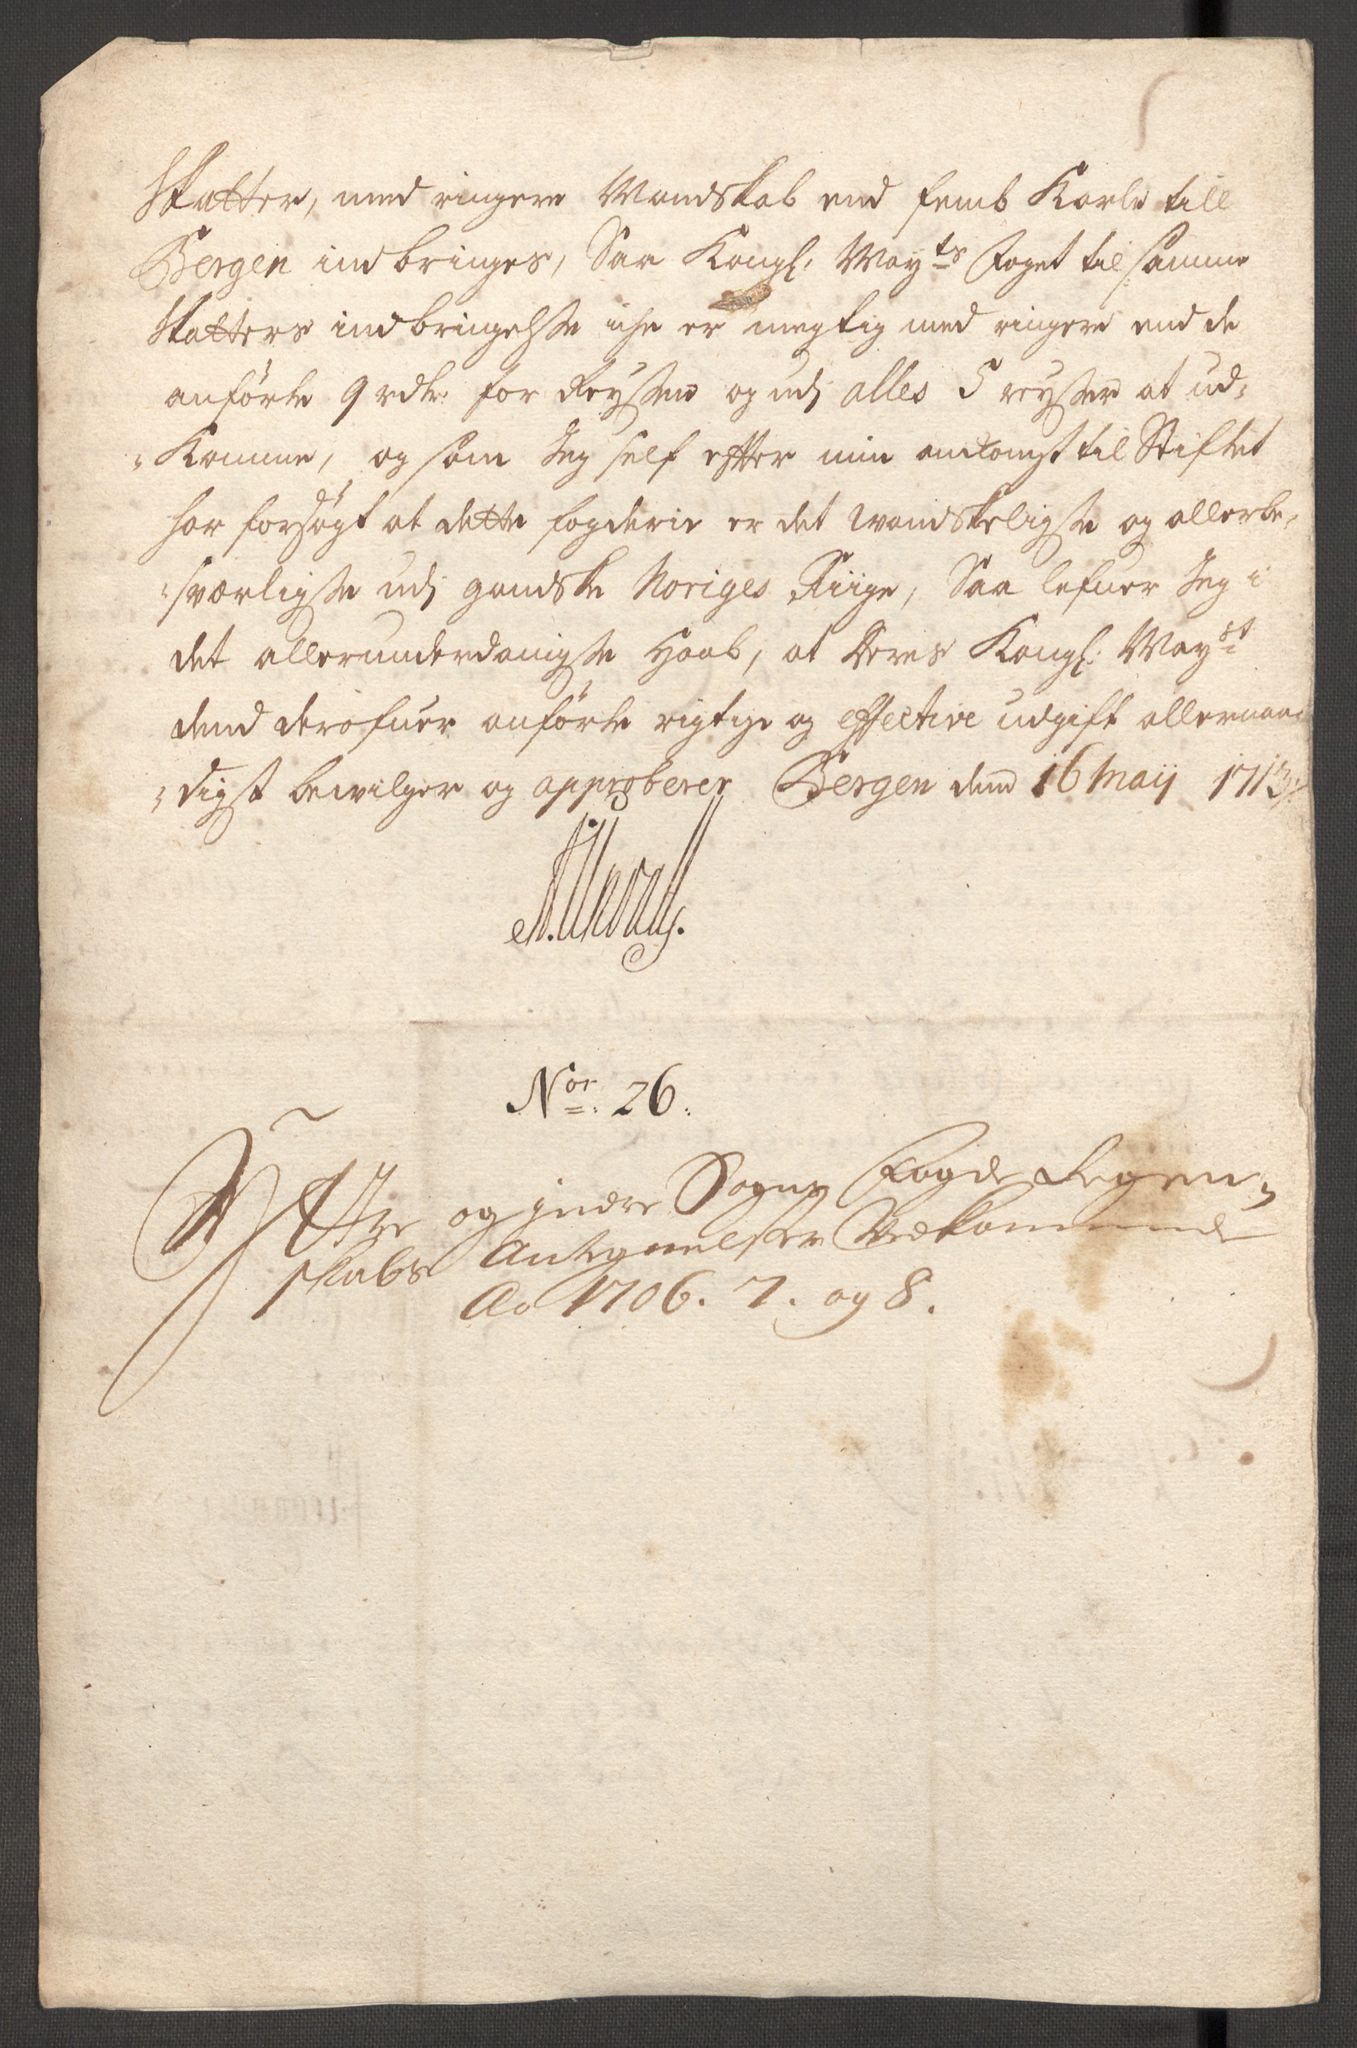 Skatter, med ringere Mandskab end femb Karle till
Bergen indbringes, Saa Kongl. May:ts Foget til samme
Skatters indbringelsse iche er megtig med ringere end de
anförte 9 rdr: for Reyssen og udj alles 5 reysser at ud-
-komme, og som Jeg self efter min ankomst til Stiftet
har forsögt at dette fogderie er det vandskeligste og allerbe-
-sværligste udj gandske Noriges Riige, Saa lefuer Jeg i
det allerunderdanigste Haab, at Deres Kongl: May:st
dend derofuer anförte rigtige og effective udgift allernaa-
-digst bevilger og approberer Bergen dend 16 Maij 1713

Nor: 26.
Yttre og indre Sogns Fogde Regen-
skabs Antegnelsser Vedkommende
Ao 1706. 7. og 8.